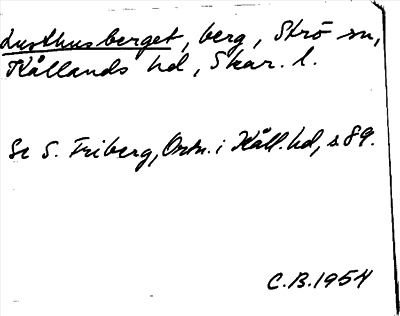 Lusthusberget, berg, Strö sn,
Kållands hd, Skar. l.
Se S. Friberg, Ortn. i Kåll. hd, s 89.
C.B. 1954